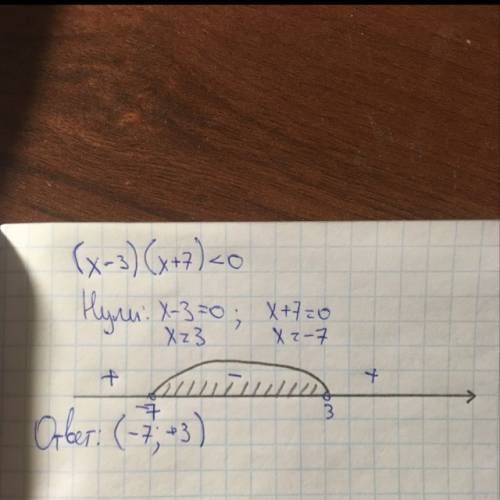 (x-3)(x+7)<0
Нули: x-3=0; x+7=0
x=3 x=-7
+ - +
-7 3
Ответ: (-7; +3)